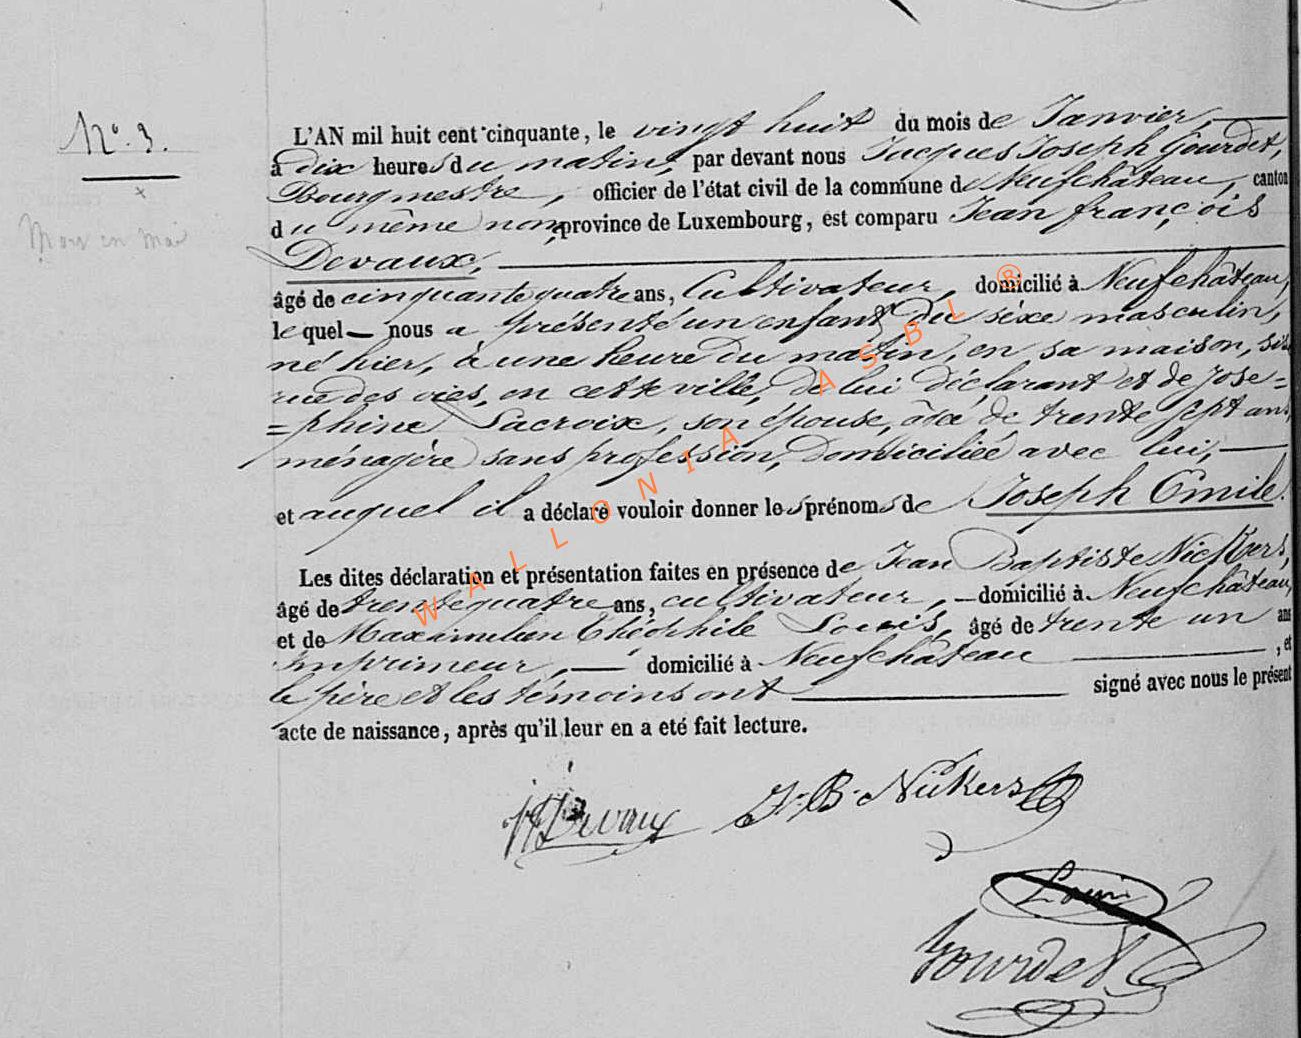 N.° 3.
L'AN mil huit cent cinquante, le vingt huit du mois de Janvier,
à dix heures du matin, par devant nous Jacques Joseph Gourdet,
Bourgmestre, officier de l'état civil de la commune de Neufchâteau, canton
du même nom, province de Luxembourg, est comparu Jean françois
Devaux,
âgé de cinquante quatre ans, Cultivateur, domicilié à Neufchâteau,
le quel nous a présenté un enfant du séxe masculin,
né hier, à une heure du matin, en sa maison, sise
rue des oies, en cette ville, de lui déclarant et de José=
=phine Lacroix, son épouse, âgé de trente sept ans,
ménagère sans profession, domiciliée avec lui,
et auquel il a déclaré vouloir donner les prénoms de Joseph Emile.
Les dites déclaration et présentation faites en présence de Jean Baptiste Nickers,
âgé de trente quatre ans, cultivateur, domicilié à Neufchâteau,
et de Maximilien Théophile Louis, âgé de trente un ans
Imprimeur, domicilié à Neufchâteau , et
le père et les témoins ont signé avec nous le présent
acte de naissance, après qu'il leur en a eté fait lecture.
JF Devaux J. B. Nickers
Louis
Gourdet
WALLONIA ASBL ®